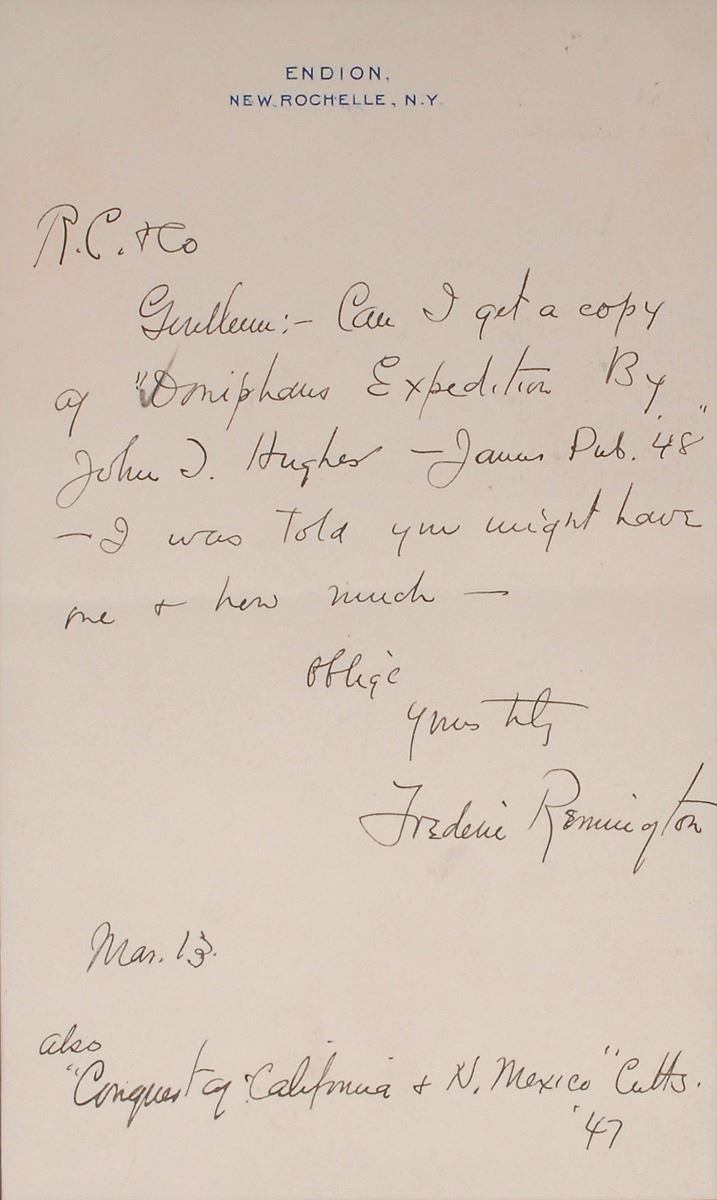 ENDION,
NEW ROCHELLE, N.Y.
R.C. & Co
Gentlemen:- Can I get a copy
of "Doniphans Expedition By
John T. Hughes - James Pub. '48"
- I was told you might have
one & how much -
Oblige
Yours trly
Frederic Remington
Mar. 13.
also
"Conquest of California & N. Mexico" Cutts.
'47